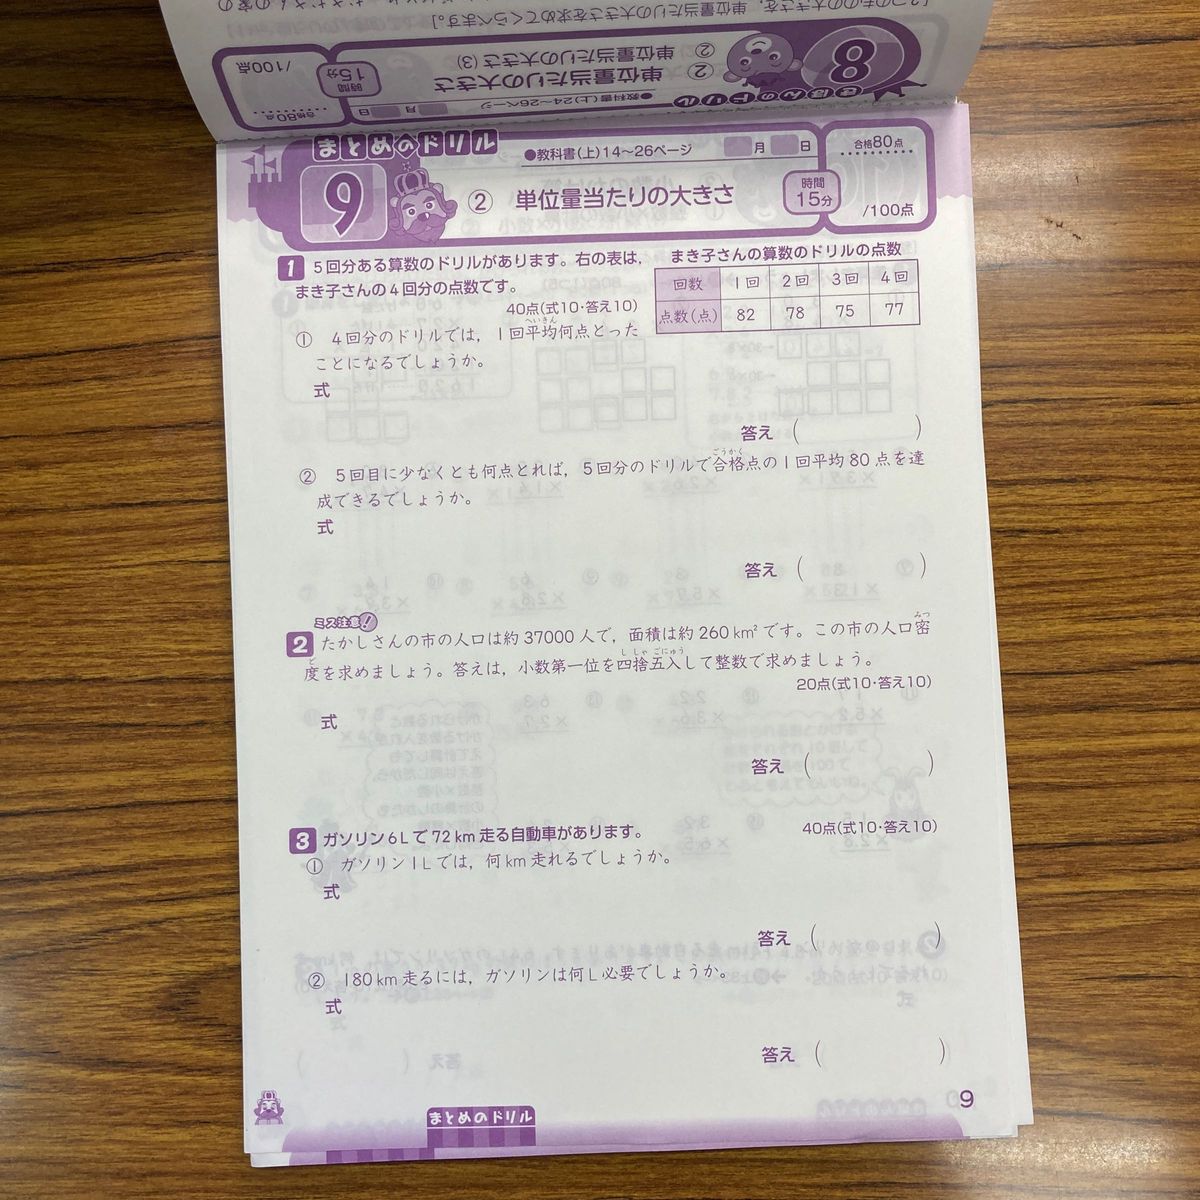 [2つのものの大きさを、単位量当たりの大きさを求めてくらべます。]
きほんのドリル
8
●教科書(上)24~26ページ
月 日
合格80点
② 単位量当たりの大きさ
② 単位量当たりの大きさ (3)
時間 15分
/100点
まとめのドリル
9
●教科書(上)14~26ページ
月 日
合格80点
② 単位量当たりの大きさ
時間 15分
/100点
1 5回分ある算数のドリルがあります。右の表は,
まき子さんの4回分の点数です。
40点(式10・答え10)
まき子さんの算数のドリルの点数
回数 1回 2回 3回 4回
点数(点) 82 78 75 77
① 4回分のドリルでは, 1回平均何点とった
へいきん
ことになるでしょうか。
式
答え ( )
② 5回目に少なくとも何点とれば, 5回分のドリルで合格点の1回平均80点を達
ごうかく
成できるでしょうか。
式
答え ( )
ミス注意!
2 たかしさんの市の人口は約37000人で, 面積は約260km²です。この市の人口密
みつ
度を求めましょう。答えは, 小数第一位を四捨五入して整数で求めましょう。
ど ししゃごにゅう
20点(式10・答え10)
式
答え ( )
3 ガソリン6Lで72km走る自動車があります。
40点(式10・答え10)
① ガソリン1Lでは, 何km走れるでしょうか。
式
答え ( )
② 180km走るには, ガソリンは何L必要でしょうか。
式
答え ( )
まとめのドリル
9